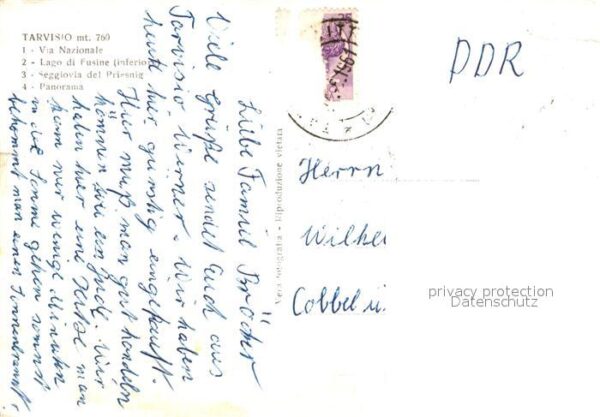 TARVISIO mt. 760
1 - Via Nazionale
2 - Lago di Fusine (inferio
3 - Seggiovia del Priesnig
4 - Panorama
Liebe Familie Bröcker
Viele Grüße sendet Euch aus
Tarvisio, Werner. Wir haben
heute hier günstig eingekauft.
Hier muß man gut handeln
können wie ein Jude. Wir
haben hier eine Hitze man
kann nur wenige Minuten
in die Sonne gehen sonst
bekommt man einen Sonnenbrand.
Vera fotografia - Riproduzione vietata
1961
DDR
Herrn
Wilhe
Cobbelu
privacy protection
Datenschutz